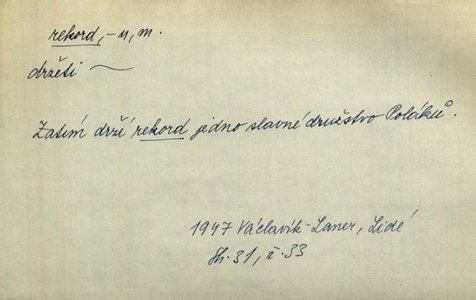 rekord, -u, m.
držeti ~
Zatím drží rekord jedno slavné družstvo Poláků.
1947 Václavík-Laner, Lidé
Sh. 31, č. 33